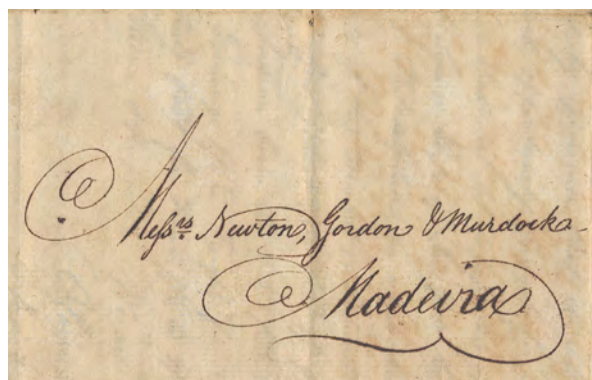 Messrs Newton, Gordon & Murdock
Madeira